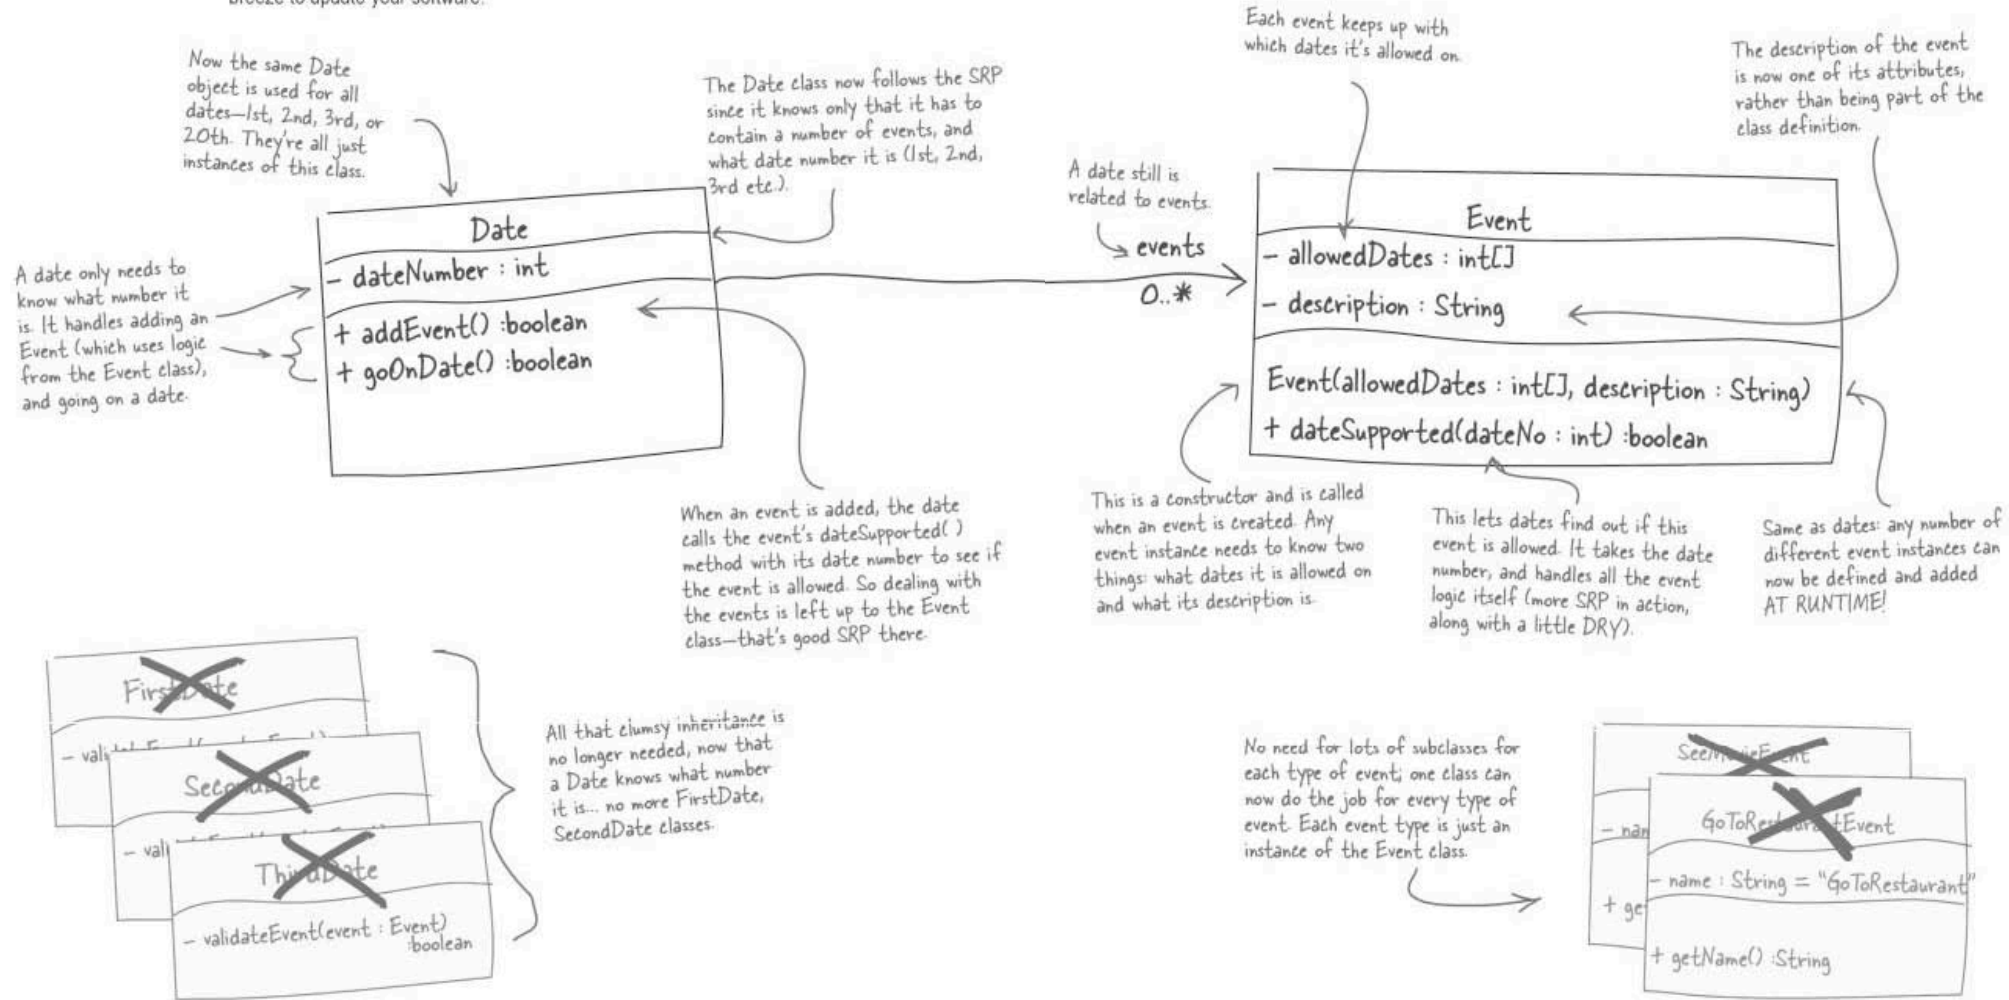 breeze to update your software.
Now the same Date
object is used for all
dates—1st, 2nd, 3rd, or
20th. They're all just
instances of this class.
The Date class now follows the SRP
since it knows only that it has to
contain a number of events, and
what date number it is (1st, 2nd,
3rd etc.).
Each event keeps up with
which dates it's allowed on.
The description of the event
is now one of its attributes,
rather than being part of the
class definition.
A date still is
related to events.
A date only needs to
know what number it
is. It handles adding an
Event (which uses logic
from the Event class),
and going on a date.
Date
- dateNumber : int
+ addEvent() :boolean
+ goOnDate() :boolean
events
0..*
Event
- allowedDates : int[]
- description : String
Event(allowedDates : int[], description : String)
+ dateSupported(dateNo : int) :boolean
When an event is added, the date
calls the event's dateSupported( )
method with its date number to see if
the event is allowed. So dealing with
the events is left up to the Event
class—that's good SRP there.
This is a constructor and is called
when an event is created. Any
event instance needs to know two
things: what dates it is allowed on
and what its description is.
This lets dates find out if this
event is allowed. It takes the date
number, and handles all the event
logic itself (more SRP in action,
along with a little DRY).
Same as dates: any number of
different event instances can
now be defined and added
AT RUNTIME!
FirstDate
- vali
SecondDate
- vali
ThirdDate
- validateEvent(event : Event)
:boolean
All that clumsy inheritance is
no longer needed, now that
a Date knows what number
it is... no more FirstDate,
SecondDate classes.
No need for lots of subclasses for
each type of event; one class can
now do the job for every type of
event. Each event type is just an
instance of the Event class.
SeeMovieEvent
- nam
+ ge
GoToRestaurantEvent
- name : String = "GoToRestaurant"
+ getName() :String